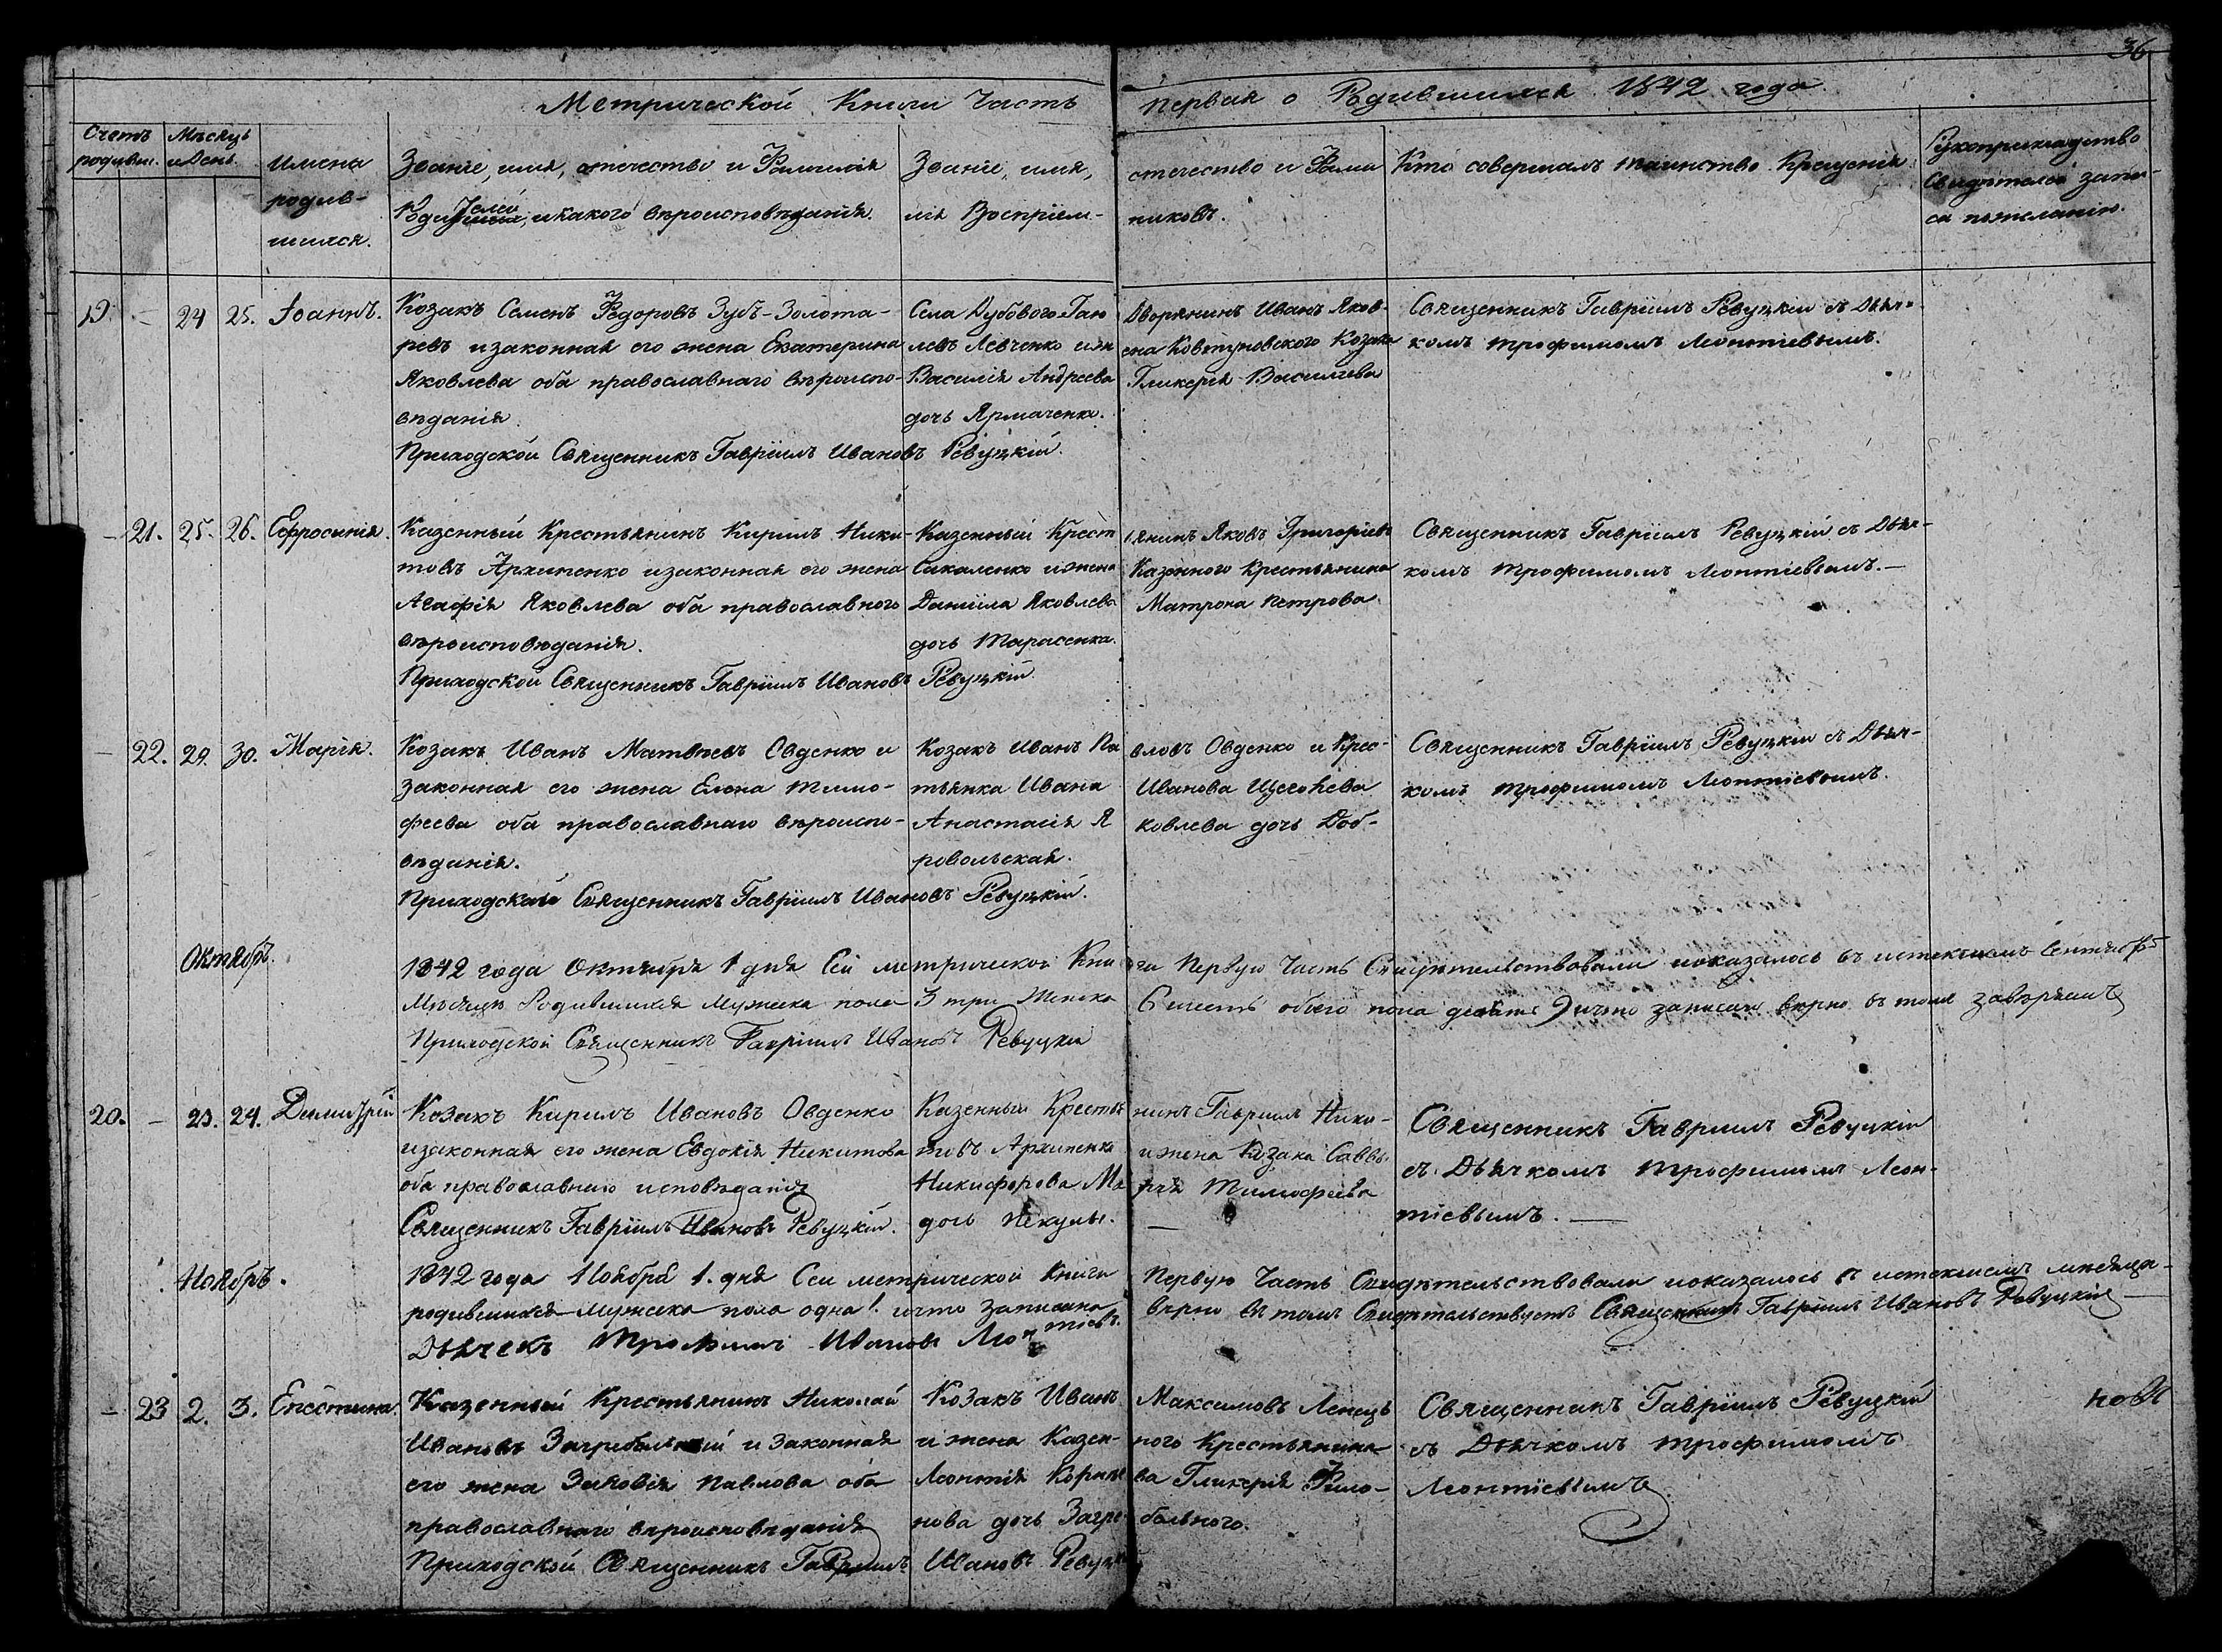 36
Метрической Книги Часть первая о Родившихся 1842 года
Счетъ родивш.
Мѣсяцъ и День.
Имена родив-
шихся.
Званіе, имя, отечество и Фамилія
Родителей, и какого вѣроисповѣданія.
Званіе, имя, отечество и Фами
лія Воспріем- никовъ.
Кто совершалъ таинство Крещенія
Рукоприкладство
Свидѣтелей запи-
си по желанію.
19. — 24 25. Іоаннъ.
Козакъ Семенъ Федоровъ Зубъ-Золота-
ревъ и законная его жена Екатерина
Яковлева оба православнаго вѣроиспо-
вѣданія.
Приходской Священникъ Гавріилъ Ивановъ Ревуцкій.
Села Дубового Дворянинъ Иванъ Яков-
левъ Левченко и жена Козака
Василія Андреева Гликерія Василіева
дочь Ярмаченка.
Священникъ Гавріилъ Ревуцкій съ Дьяч-
комъ Трофимомъ Леонтіевымъ.
— 21. 25. 26. Ефросинія.
Казенный Крестьянинъ Кирилъ Ники-
товъ Архипенко и законная его жена
Агафія Яковлева оба православного
вѣроисповѣданія.
Приходской Священникъ Гавріилъ Ивановъ Ревуцкій.
Казенный Крестьянинъ Яковъ Григоріевъ
и жена Казенного Крестьянина
Даніила Яковлева Матрона Петрова
дочь Тарасенка.
Священникъ Гавріилъ Ревуцкій съ Дьяч-
комъ Трофимомъ Леонтіевымъ.—
— 22. 29. 30. Марія.
Козакъ Иванъ Матвѣевъ Овденко и
законная его жена Елена Тимо-
феева оба православнаго вѣроиспо-
вѣданія.
Приходской Священникъ Гавріилъ Ивановъ Ревуцкій.
Козакъ Иванъ Павловъ Овденко и Крес-
тьянка Ивана Иванова
Анастасія Яковлева дочь Доб-
ровольская.
Священникъ Гавріилъ Ревуцкій съ Дьяч-
комъ Трофимомъ Леонтіевымъ.
Октябрь.
1842 года Октября 1 дня Сей метрической Книги Первую Часть Свидѣтельствовали и оказалось въ истекшемъ Сентябрѣ
Мѣсяцѣ Родившихся Мужеска пола 3 три Женска 6 шесть обоего пола 9 и что записаны вѣрно въ томъ завѣряемъ
Приходской Священникъ Гавріилъ Ивановъ Ревуцкій
20. — 23. 24. Димитрій
Козакъ Кирилъ Ивановъ Овденко
и законная его жена Евдокія Никитова
оба православнаго исповѣданія
Священникъ Гавріилъ Ивановъ Ревуцкій.
Казенный Крестьянинъ Гавріилъ Ники-
товъ Архипенко и жена Козака Саввы
Никифорова Марія Тимофеева
дочь
Священникъ Гавріилъ Ревуцкій
съ Дьячкомъ Трофимомъ Леон-
тіевымъ. —
Ноябрь.
1842 года Ноября 1. дня Сей метрической Книги Первую Часть Свидѣтельствовали и оказалось въ истекшемъ мѣсяцѣ
родившихся мужеска пола одна 1. и что записано вѣрно въ томъ Свидѣтельствуетъ Священникъ Гавріилъ Ивановъ Ревуцкій
Дьячекъ Трофимъ Ивановъ Леонтіевъ.
— 23 2. 3. Епистима.
Казенный Крестьянинъ Николай
Ивановъ Загребальный и законная
его жена Зиновія Павлова оба
православнаго вѣроисповѣданія
Приходской Священникъ Гавріилъ Ивановъ Ревуцкій
Козакъ Иванъ Максимовъ
и жена Казен- ного Крестьянина
Леонтія Гликерія Фило-
нова дочь Загре- бального.
Священникъ Гавріилъ Ревуцкій
съ Дьячкомъ Трофимомъ
Леонтіевымъ.